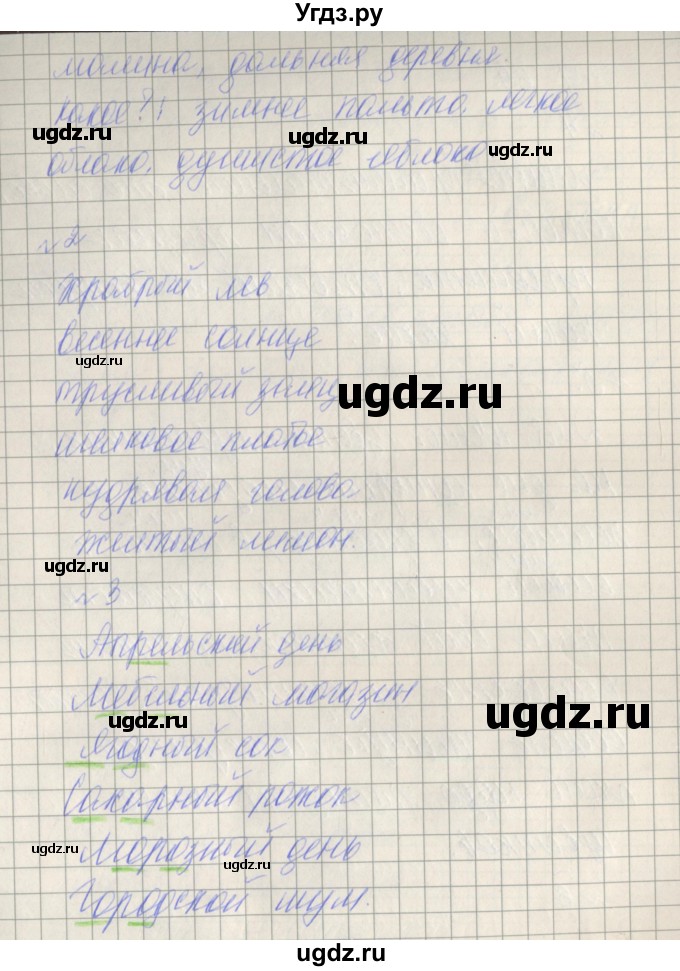 Угдз.ру
малина, дальняя деревня.
Какое? зимнее пальто, легкое
ugdz.ru ugdz.ru ugdz.ru
облако, душистое яблоко
№2
Храбрый лев
весеннее солнце
ugdz.ru
трусливый заяц
ugdz.ru
шелковое платье
кудрявая голова
желтый лимон.
ugdz.ru
№3
Апрельский день
Мебельный магазин
ugdz.ru ugdz.ru
Ягодный сок
Сахарный рожок
ugdz.ru Морозный день
ugdz.ru
Городской шум.
ugdz.ru